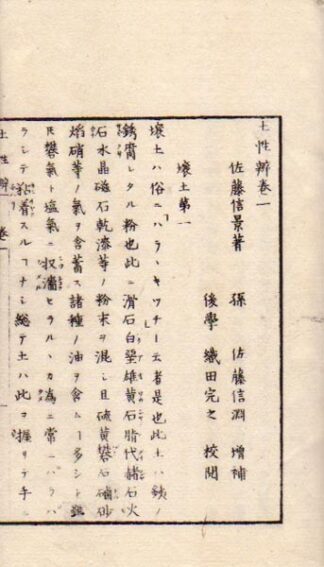 土性辨卷一
佐藤信景著 孫 佐藤信淵 增補
後學 織田完之 校閲
壤土第一
壤土ハ俗ニ「ハラヽキツチ」ト云者是也此土ハ鐵ノ
銹腐シタル粉也此ニ滑石白堊雄黄石脂代赭石火
石水晶磁石乾漆等ノ粉末ヲ混シ且硫黄礬石硇砂
焰硝等ノ氣ヲ含蓄ス諸種ノ油ヲ含ムヿ多シト雖
𪜈礬氣ト塩氣ニ収濇セラルヽカ為ニ常ニハラバ
ラシテ粘着スルヿナシ總テ土ハ此ヲ握リテ手ニ
土性辨 卷